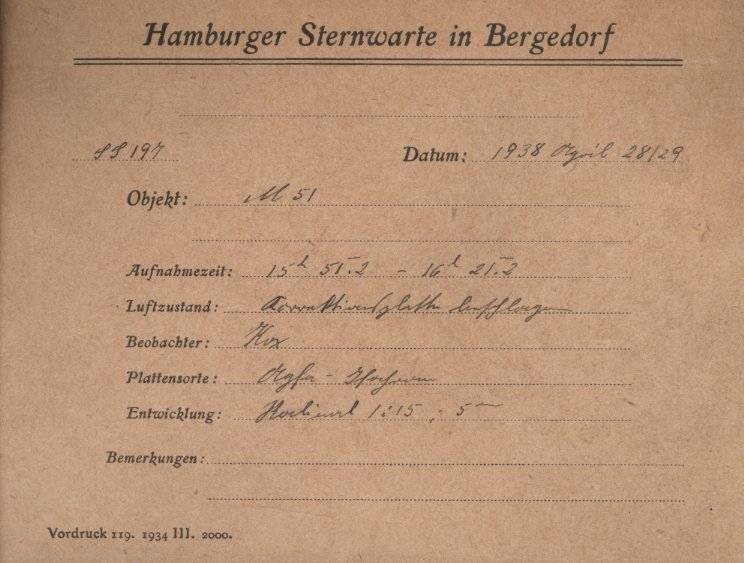 Hamburger Sternwarte in Bergedorf
SS 197 Datum: 1938 April 28/29
Objekt: M 51
Aufnahmezeit: 15h 51m.2 – 16h 21m.2
Luftzustand: Korrektionsplatte beschlagen
Beobachter: Kox
Plattensorte: Agfa - Isochrom
Entwicklung: Rodinal 1:15 ; 5m
Bemerkungen:
Vordruck 119. 1934 III. 2000.